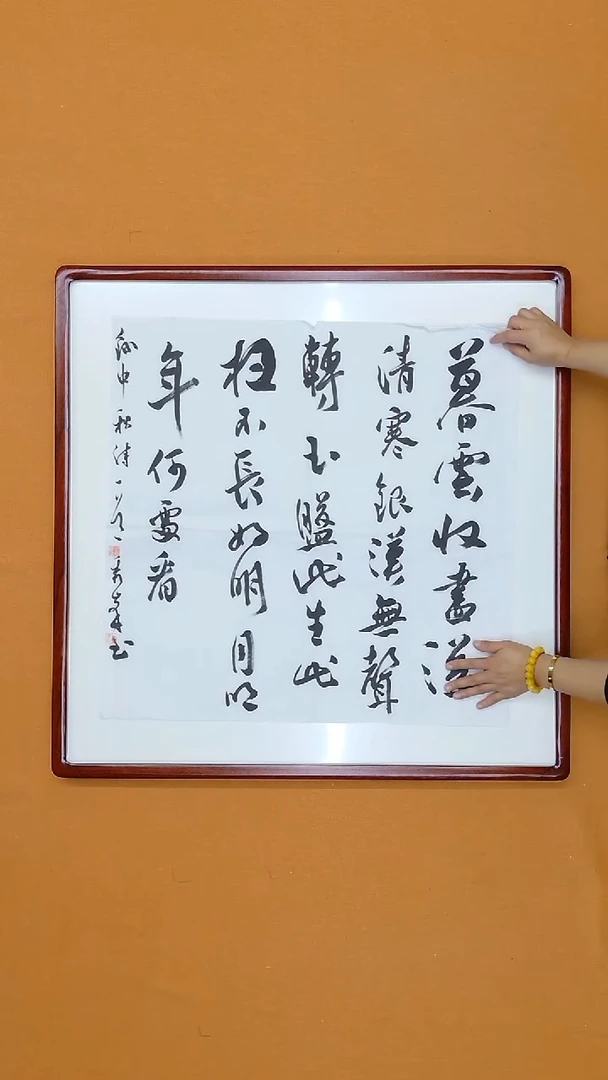 暮雲收盡溢
清寒銀漢無聲
轉玉盤此生此
夜不長好明月明
年何處看
中秋詩一首